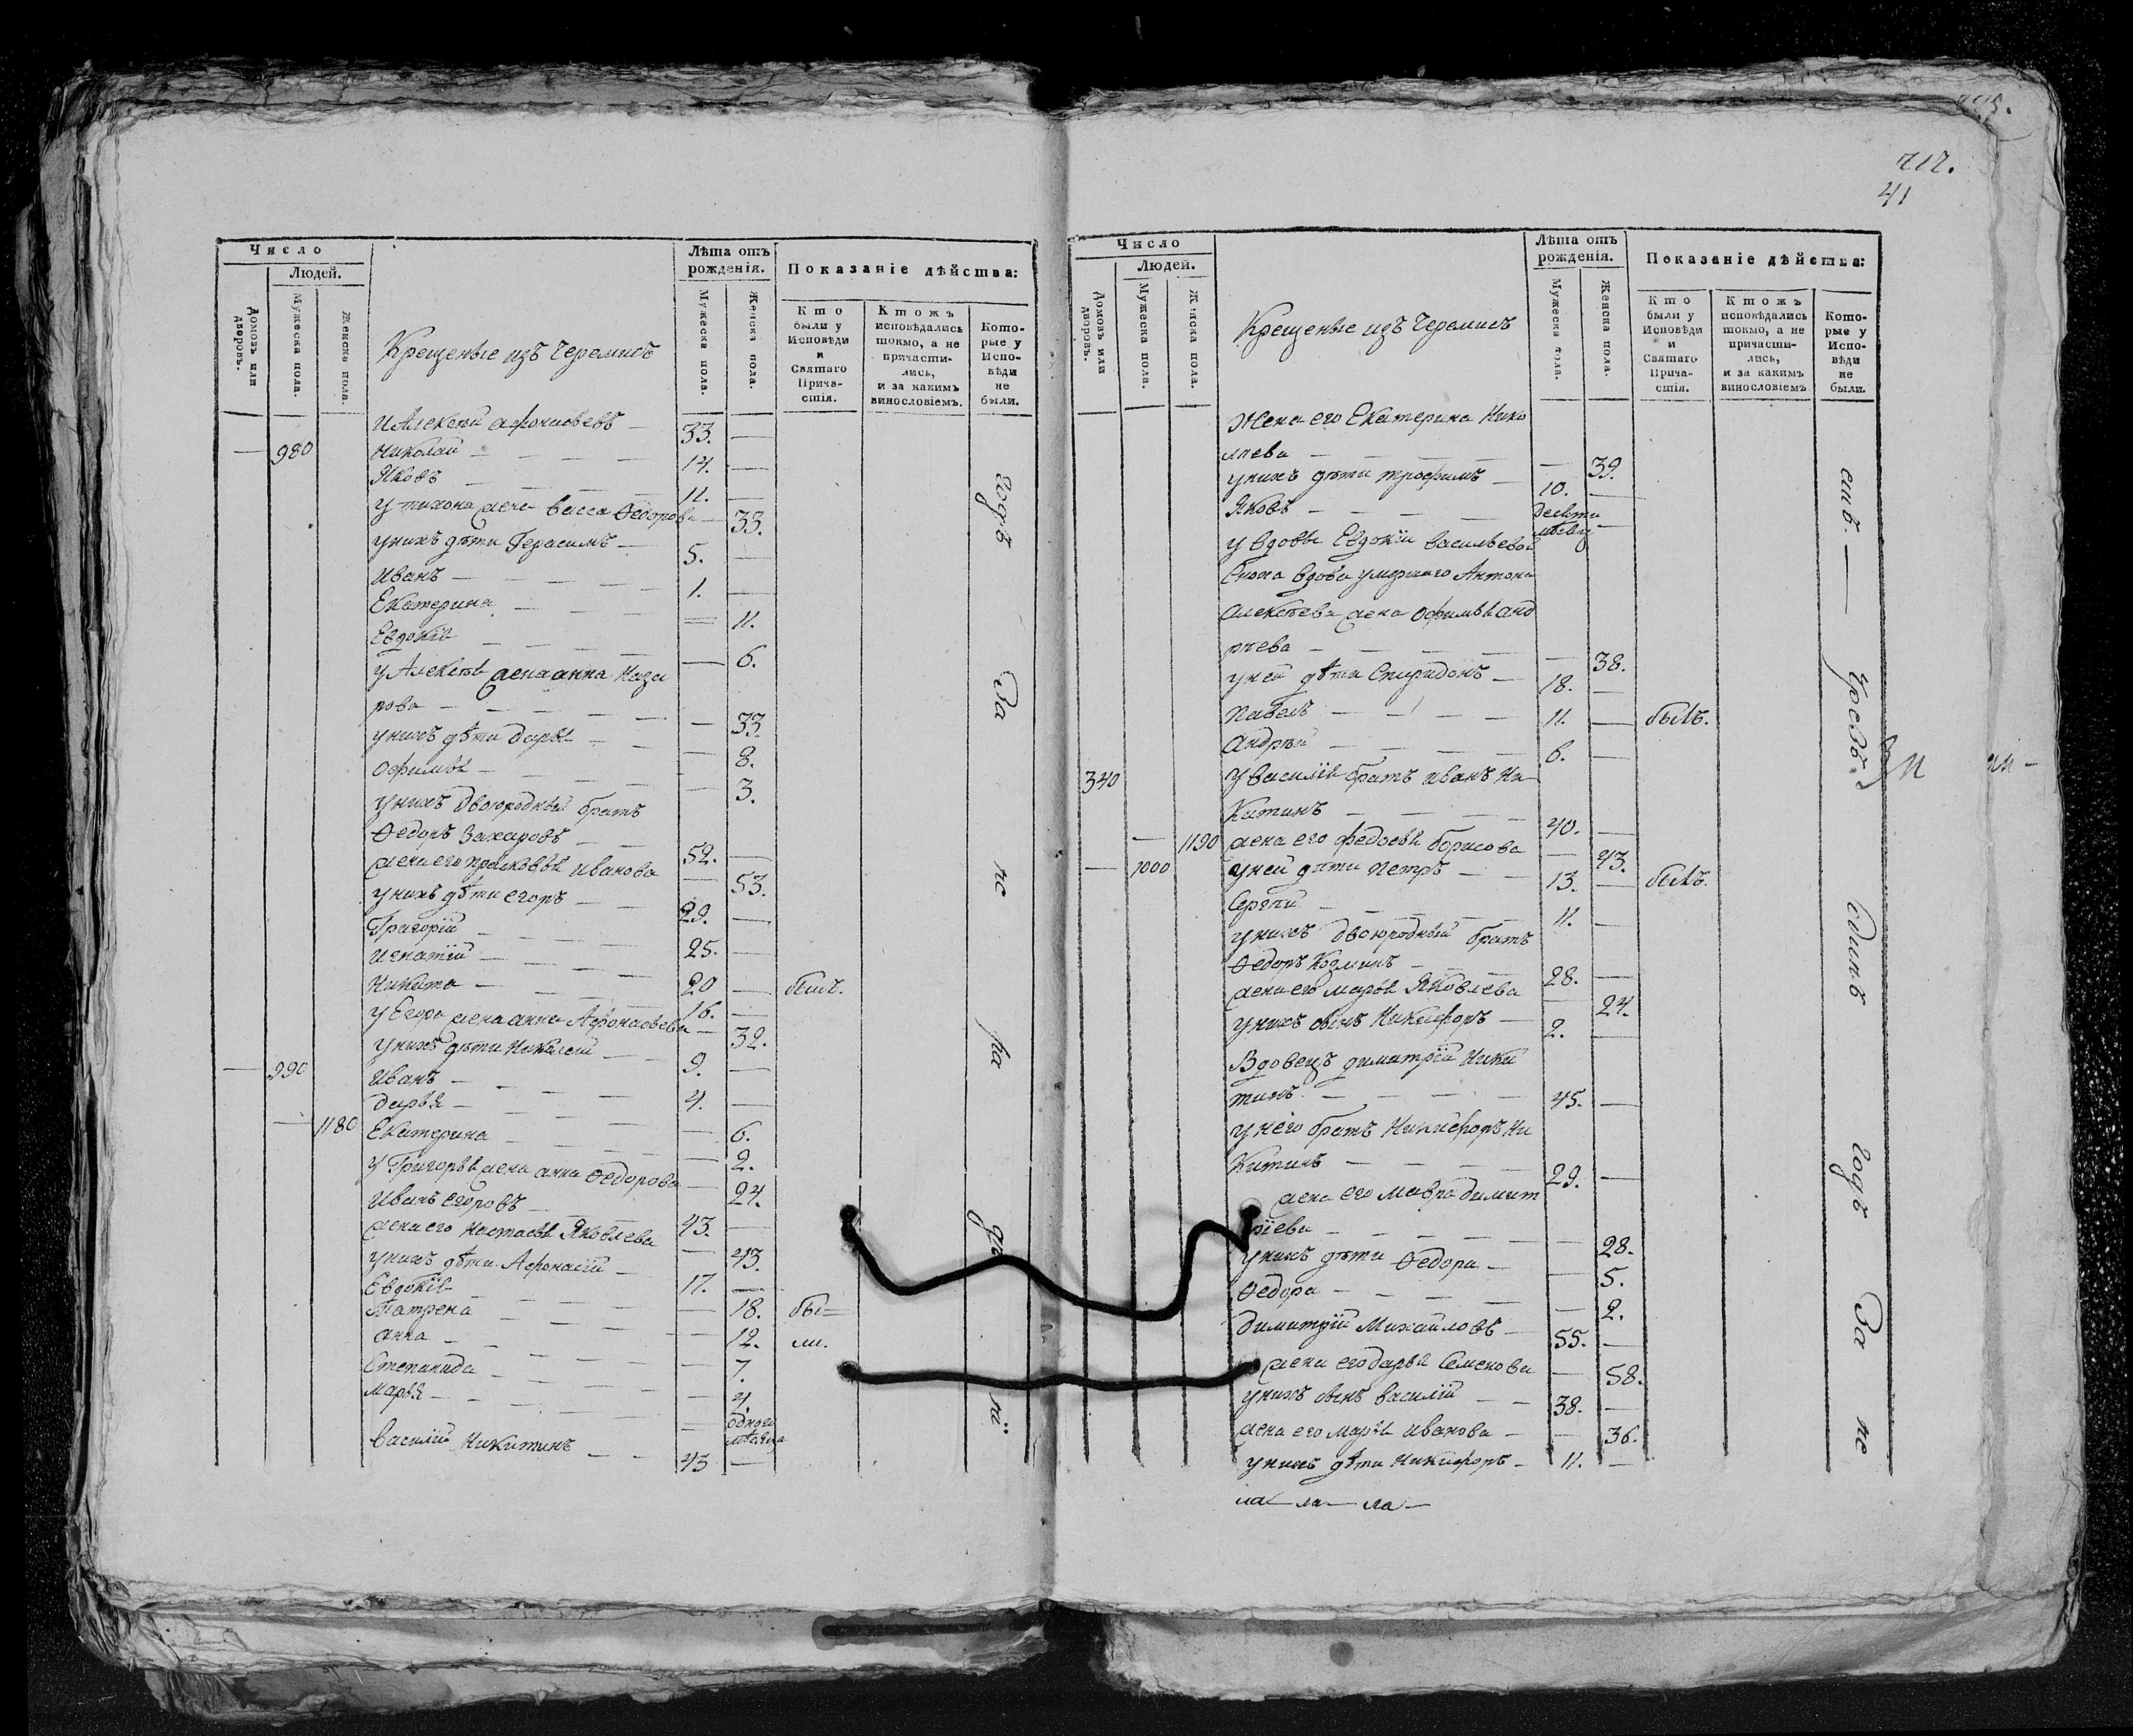 Число
Людей.
Домовъ или дворовъ.
Мужеска пола.
Женска пола.
Крещеные изъ черемисъ
Лѣта отъ рожденія.
Мужеска пола.
Женска пола.
Показаніе дѣйства:
Кто были у Исповѣди и Святаго Причастія.
Ктожъ исповѣдались токмо, а не причастились, и за какимъ винословіемъ.
Которые у Исповѣди не были.
И Алексѣй Афонасьевъ — 33. —
— 980 Николай — 14. —
Яковъ — 11. —
У Тихона жена васса Ѳедорова — 33.
у нихъ дѣти Герасимъ — 5. —
Иванъ — 1. —
Екатерина — 11.
Евдокія — 6.
у Алексѣя жена анна Наза
рова — 33.
у нихъ дѣти дарья — 8.
Офимья — 3.
у нихъ двоюродный братъ
Ѳедоръ Захаровъ — 52. —
жена его прасковья иванова — 53.
у нихъ дѣти егоръ — 29. —
Григорій — 25. —
игнатій — 20 — былъ.
Никита — 16. —
у Егора жена анна Афонасьева — 32.
у нихъ дѣти Николай — 9. —
— 990 Иванъ — 4. —
дарья — 6.
— 1180 Екатерина — 2.
у Григорья жена анна Ѳедорова — 24.
Иванъ егоровъ — 43. —
жена его настасья Яковлева — 43.
у нихъ дѣти Афонасій — 17. —
Евдокія — 18. бы—
Матрена — 12. ли.
анна — 7.
Степанида — 4.
Марья — одного мѣсяца
василій Никитинъ — 43 —
годъ За не ра дѣ ні
717.
41
Число
Людей.
Домовъ или дворовъ.
Мужеска пола.
Женска пола.
Крещеные изъ черемисъ
Лѣта отъ рожденія.
Мужеска пола.
Женска пола.
Показаніе дѣйства:
Кто были у Исповѣди и Святаго Причастія.
Ктожъ исповѣдались токмо, а не причастились, и за какимъ винословіемъ.
Которые у Исповѣди не были.
Жена его Екатерина Нико
лаева — 39.
у нихъ дѣти трофимъ — 10. —
Яковъ — десяти
у вдовы Евдокіи васильевой
Сноха вдова умершаго Антона
алексѣева жена Офимья анд
рѣева — 38.
у ней дѣти Спиридонъ — 18. —
Павелъ — 11. — былъ.
Андрѣй — 6. —
340 у василія братъ иванъ Ни
китинъ — 40. —
— 1190 жена его федосья борисова — 43.
— 1000 у ней дѣти петръ — 13. — былъ.
Сергѣй — 11. —
у нихъ двоюродный братъ
Ѳедоръ Козминъ — 28. —
жена его марья Яковлева — 24.
у нихъ сынъ Никифоръ — 2. —
Вдовецъ димитрій Ники
тинъ — 45. —
у него братъ Никифоръ Ни
китинъ — 29. —
жена его мавра димит
ріева — 28.
у нихъ дѣти Ѳедора — 5.
Ѳедора — 2.
димитрій Михайловъ — 55. —
жена его дарья Семенова — 58.
у нихъ сынъ василій — 38. —
жена его марья иванова — 36.
у нихъ дѣти Никифоръ — 11. —
ла — ла — ла —
емъ. — Чрезъ одинъ годъ За не